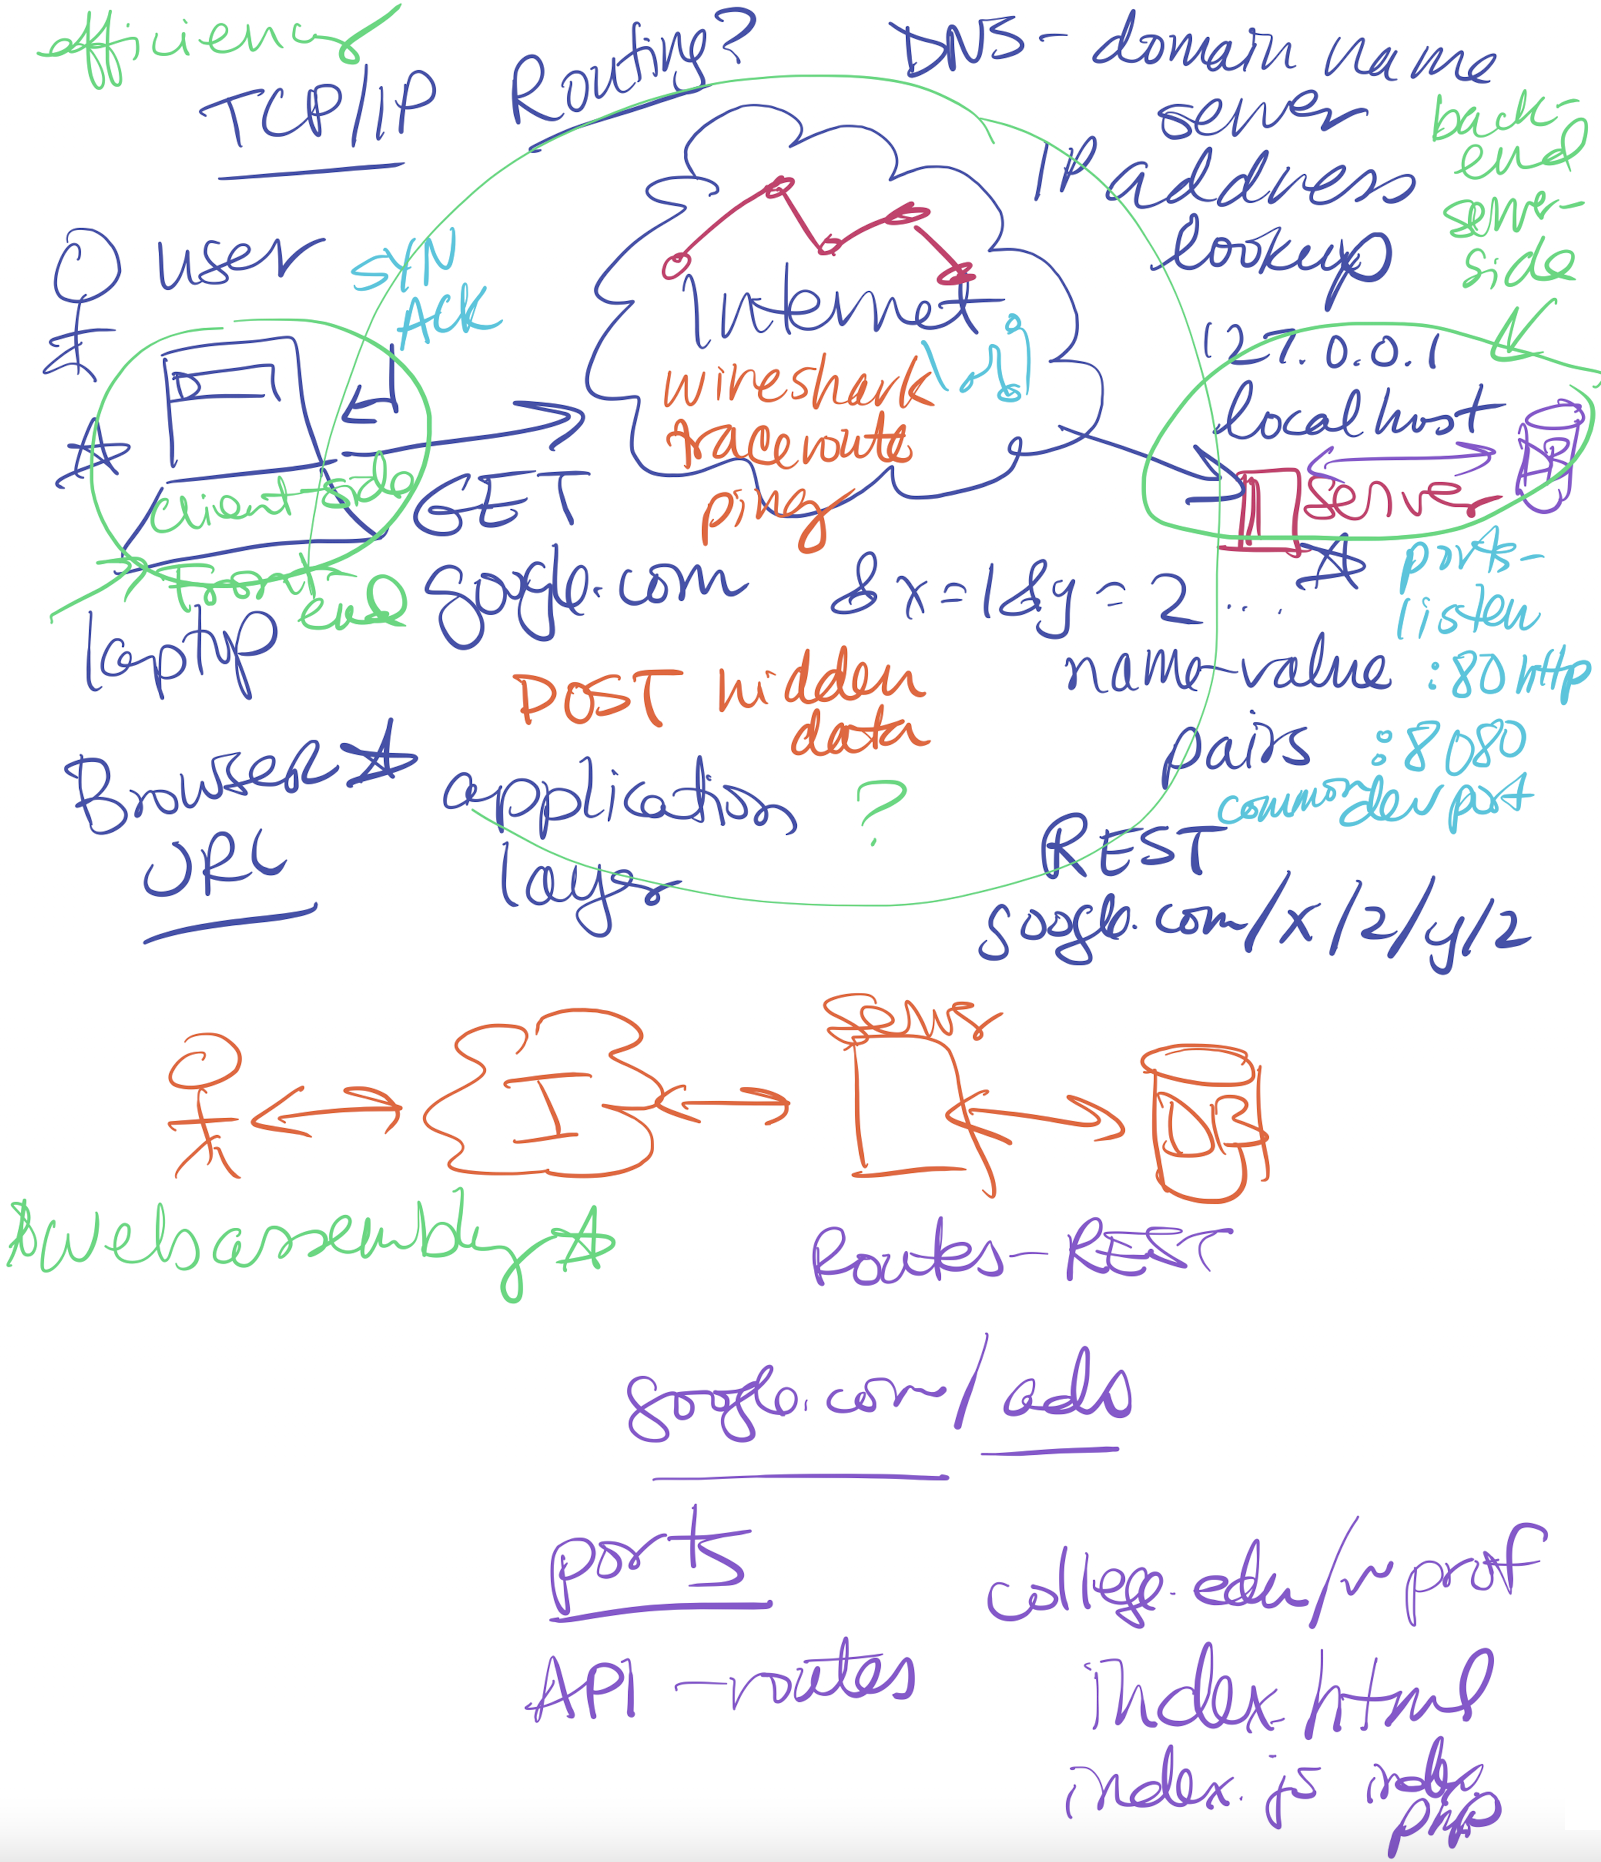 efficiency
TCP/IP
Routing?
DNS - domain name
server
IP address
lookup
back-
end
server-
side
user
SYN
ACK
Internet
wireshark
traceroute
ping
127.0.0.1
localhost
server
DB
client-side
front
end
laptop
GET
google.com
&x=1&y=2...
name-value
pairs
POST hidden
data
ports-
listen
:80 http
:8080
common dev port
Browser
URL
application
layer
?
REST
google.com/x/2/y/2
I
Server
DB
Webassembly
Routes-REST
google.com/ads
ports
API -routes
college.edu/~prof
index.html
index.js index
php